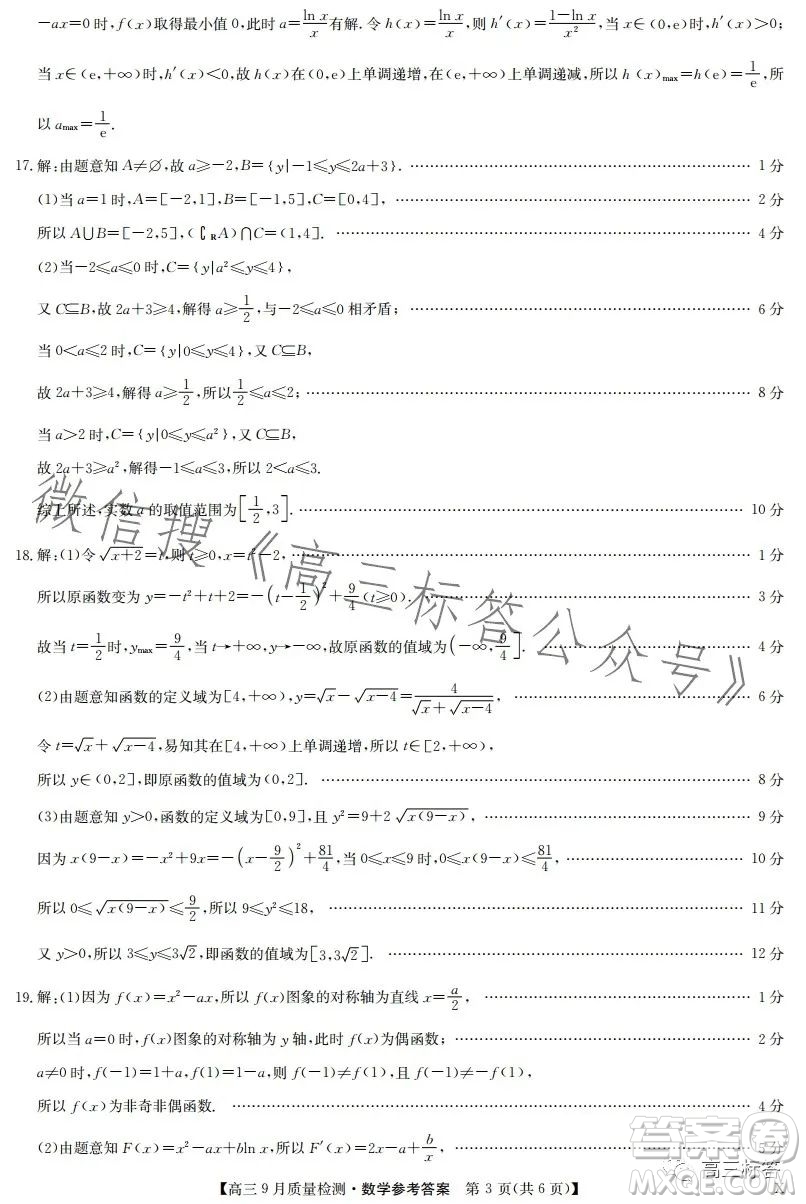 －ax＝0时，f(x)取得最小值0，此时a＝ln x/x有解．令h(x)＝ln x/x，则h′(x)＝(1－ln x)/x²，当x∈(0，e)时，h′(x)＞0；
当x∈(e，＋∞)时，h′(x)＜0，故h(x)在(0，e)上单调递增，在(e，＋∞)上单调递减，所以h(x)max＝h(e)＝1/e，所
以amax＝1/e．
17. 解：由题意知A≠∅，故a≥－2，B＝{y|－1≤y≤2a＋3}．…… 1分
(1)当a＝1时，A＝[－2，1]，B＝[－1，5]，C＝[0，4]，…… 2分
所以A∪B＝[－2，5]，(∁RA)∩C＝(1，4]．…… 4分
(2)当－2≤a≤0时，C＝{y|a²≤y≤4}，
又C⊆B，故2a＋3≥4，解得a≥1/2，与－2≤a≤0相矛盾；…… 6分
当0＜a≤2时，C＝{y|0≤y≤4}，又C⊆B，
故2a＋3≥4，解得a≥1/2，所以1/2≤a≤2；…… 8分
当a＞2时，C＝{y|0≤y≤a²}，又C⊆B，
故2a＋3≥a²，解得－1≤a≤3，所以2＜a≤3．
综上所述，实数a的取值范围为[1/2，3]．…… 10分
18. 解：(1)令√(x＋2)＝t，则t≥0，x＝t²－2，…… 1分
所以原函数变为y＝－t²＋t＋2＝－(t－1/2)²＋9/4(t≥0)．…… 3分
故当t＝1/2时，ymax＝9/4，当t→＋∞，y→－∞，故原函数的值域为(－∞，9/4]．…… 4分
(2)由题意知函数的定义域为[4，＋∞)，y＝√x－√(x－4)＝4/(√x＋√(x－4))，…… 6分
令t＝√x＋√(x－4)，易知其在[4，＋∞)上单调递增，所以t∈[2，＋∞)，
所以y∈(0，2]，即原函数的值域为(0，2]．…… 8分
(3)由题意知y＞0，函数的定义域为[0，9]，且y²＝9＋2√(x(9－x))，…… 9分
因为x(9－x)＝－x²＋9x＝－(x－9/2)²＋81/4，当0≤x≤9时，0≤x(9－x)≤81/4，…… 10分
所以0≤√(x(9－x))≤9/2，所以9≤y²≤18，…… 11分
又y＞0，所以3≤y≤3√2，所以函数的值域为[3，3√2]．…… 12分
19. 解：(1)因为f(x)＝x²－ax，所以f(x)图象的对称轴为直线x＝a/2，…… 1分
所以当a＝0时，f(x)图象的对称轴为y轴，此时f(x)为偶函数；…… 2分
a≠0时，f(－1)＝1＋a，f(1)＝1－a，所以f(－1)≠f(1)，且f(－1)≠－f(1)，
所以f(x)为非奇非偶函数．…… 4分
(2)由题意知F(x)＝x²－ax＋bln x，所以F′(x)＝2x－a＋b/x，…… 5分
【高三9月质量检测·数学参考答案 第3页(共6页)】
微信搜《高三标答公众号》
高三标答
答案圈
MXQE.COM